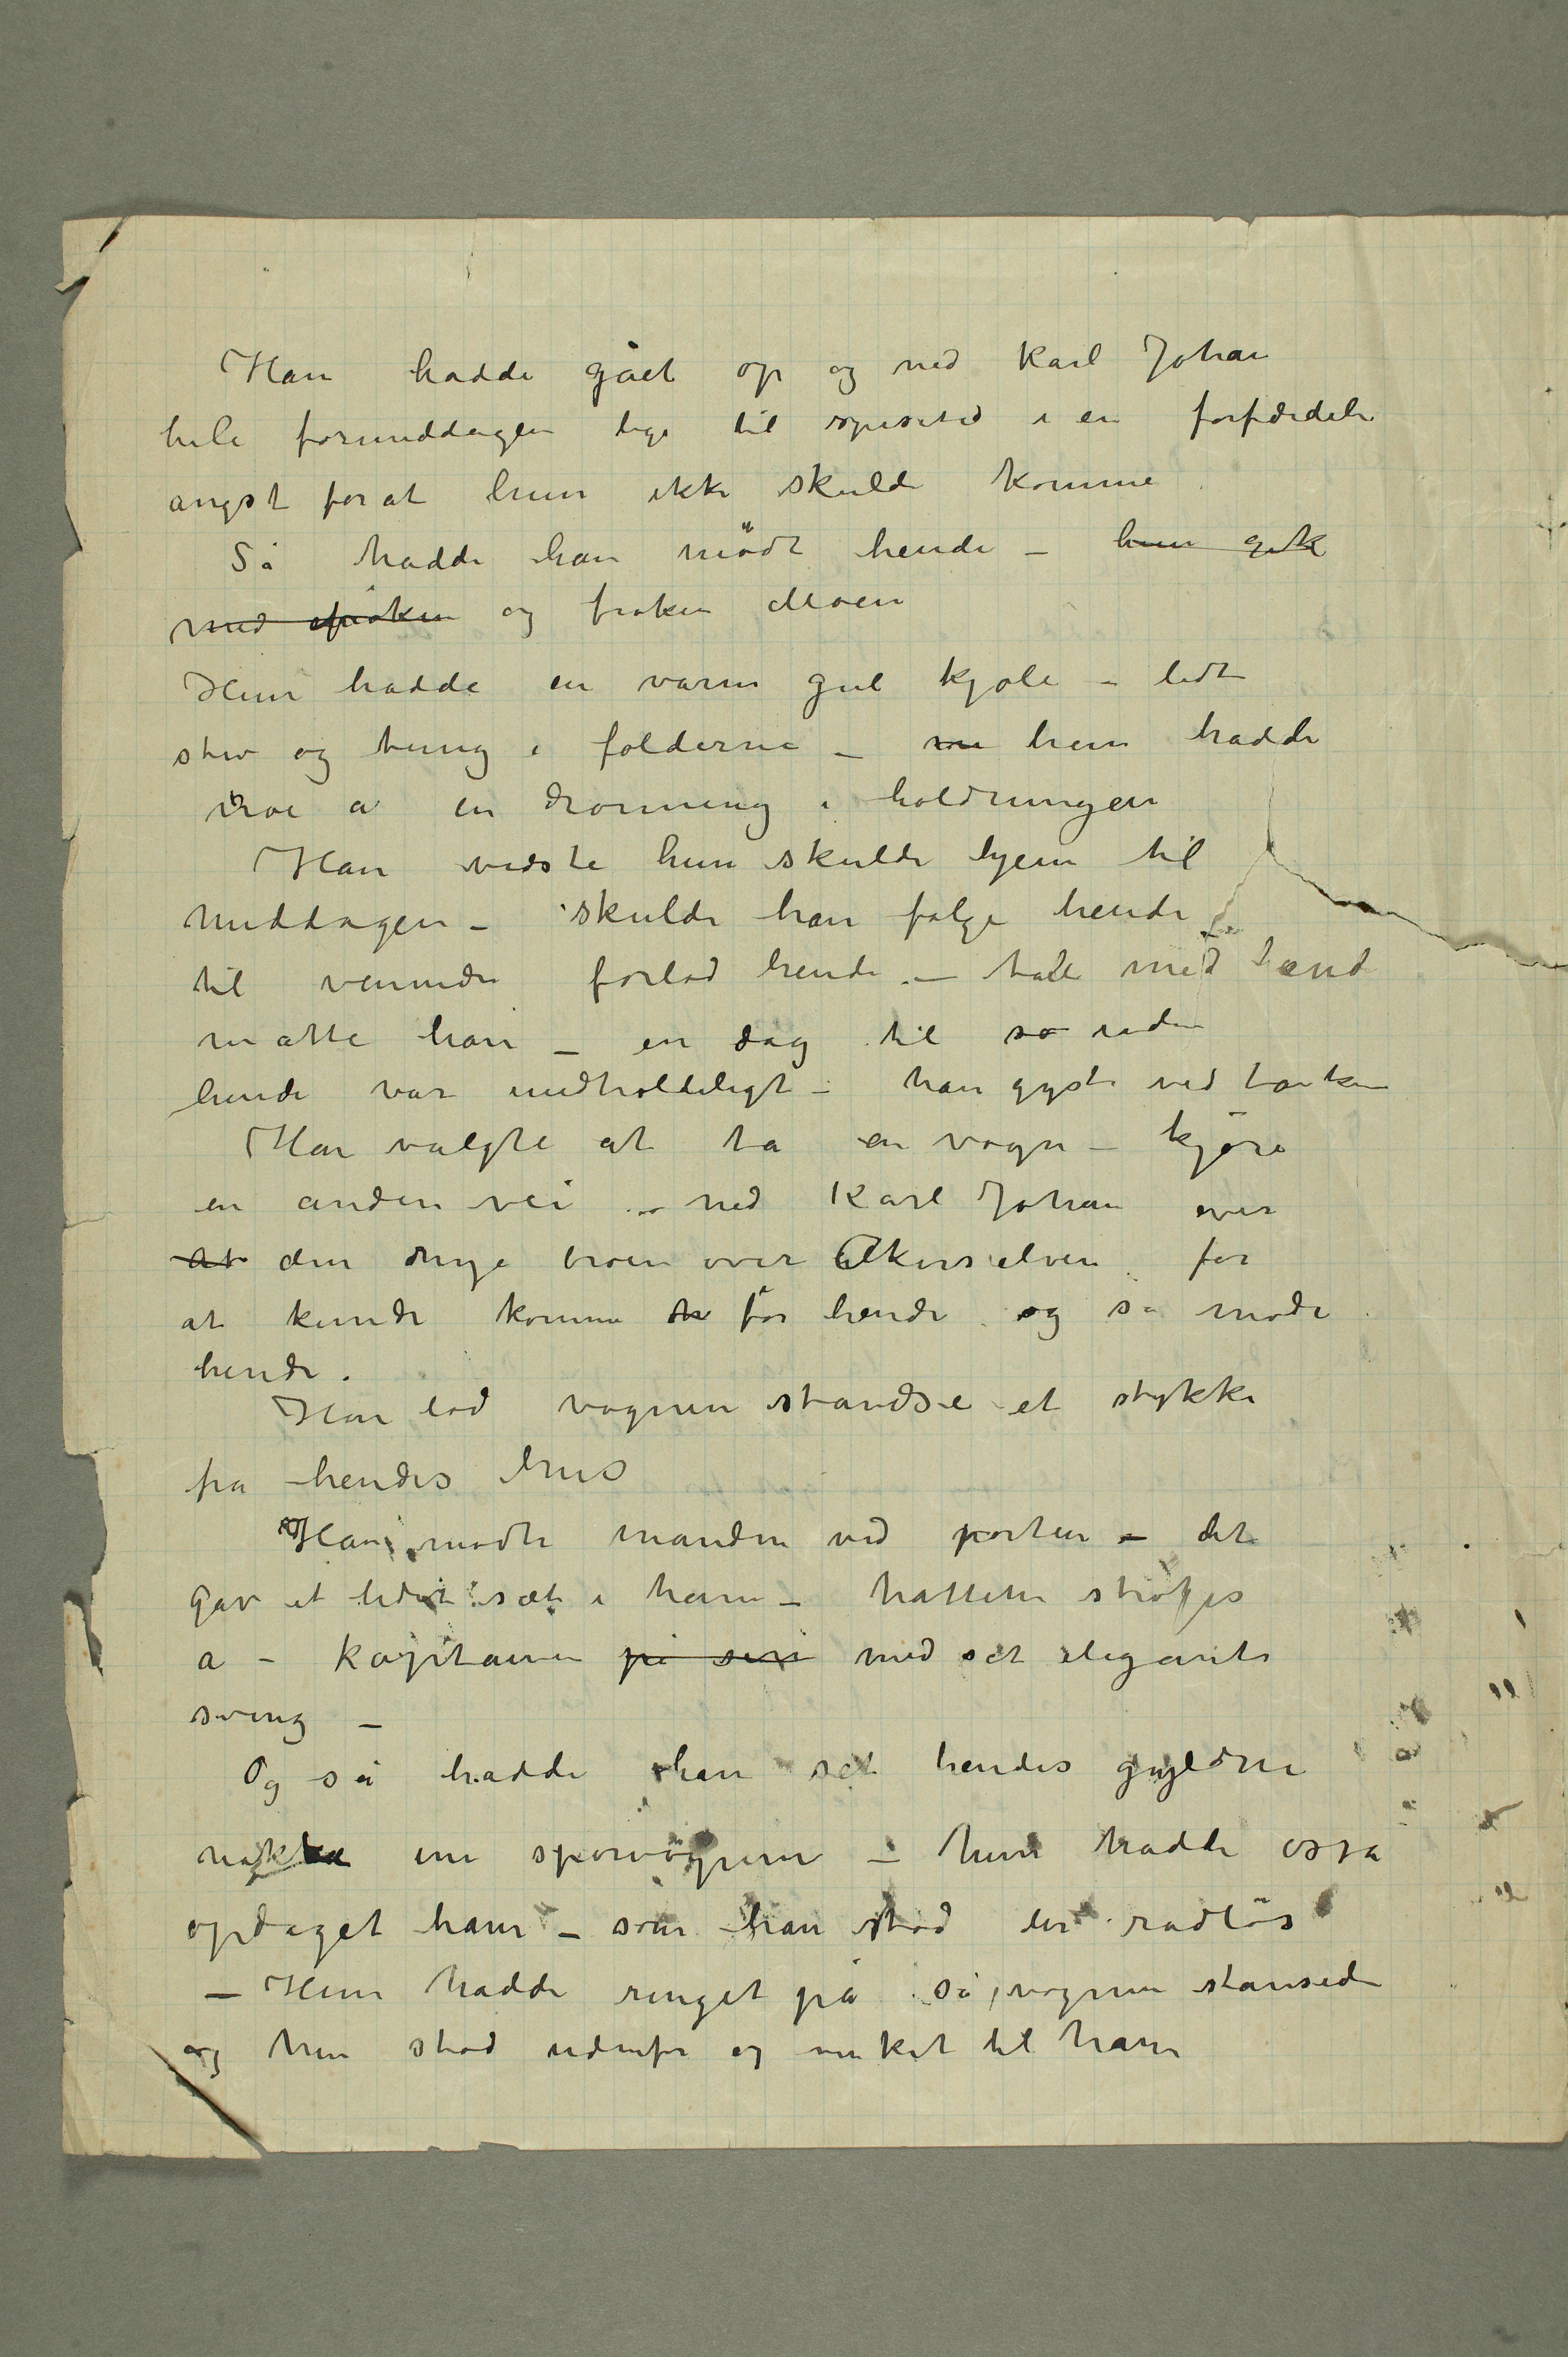 Han hadde gået op og ned Karl Johan
hele formiddagen lige til spisetid i en forfærdeli
angst forat hun ikke skulde komme
Så hadde han mödt hende – hun gik
med frøken og frøken Moen
Hun hadde en varm gul kjole – lidt
stiv og tung i folderne – hun hadde
noe a en dronning i holdningen
Han vidste hun skulde hjem til
middagen – skulde han følge hende
til venindr forlod hende – tale med
måtte han – en dag til så uden
hende var uudholdeligt – han gyste ved tanken
Han valgte at ta en vogn – kjöre
en anden vei – ned Karl Johan over
at den nye broen over Akerselven for
at kunde komme för hende og så møde
hende.
Han lod vognen standse et stykke
fra hendes hus
Han mødte manden ved porten – det
gav et lidet sæt i ham – hattene strøges
a – kapitainen på sin med sit elegante
sving –
Og så hadde han set hendes gyldne
nakke i sporvognen – hun hadde osså
opdaget ham – som han stod der rådlös
– Hun hadde ringet på så vognen stansede
og hun stod udenfor og vinket til ham